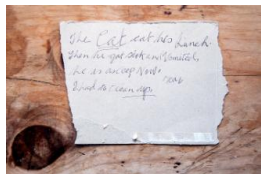 The Cat eat his Lunch.
Then he got sick and Vomited,
he is an cop
I had to clean up.